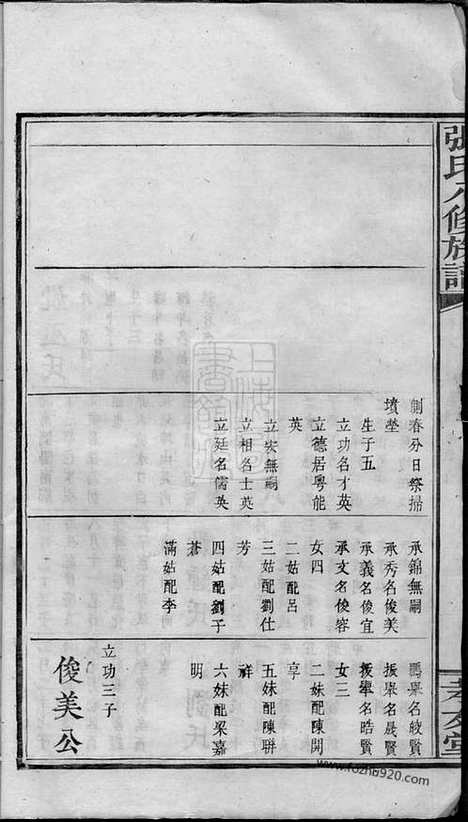 張氏八修族譜
剿春分日祭掃
墳塋
生子五
立功名才英
立德居粵能
英
立安無嗣
立相名士英
立廷名儒英
承錦無嗣
承秀名俊美
承義名俊宜
承文名俊容
女四
二姑配呂
三姑配劉仕
芳
四姑配劉子
蒼
滿姑配李
名皎賢
振名晟賢
振名皓賢
女三
二妹配陳開
享
五妹配陳聯
祥
六妹配梁嘉
明
立功三子
俊美公
孝友堂
www.fozhu920.com